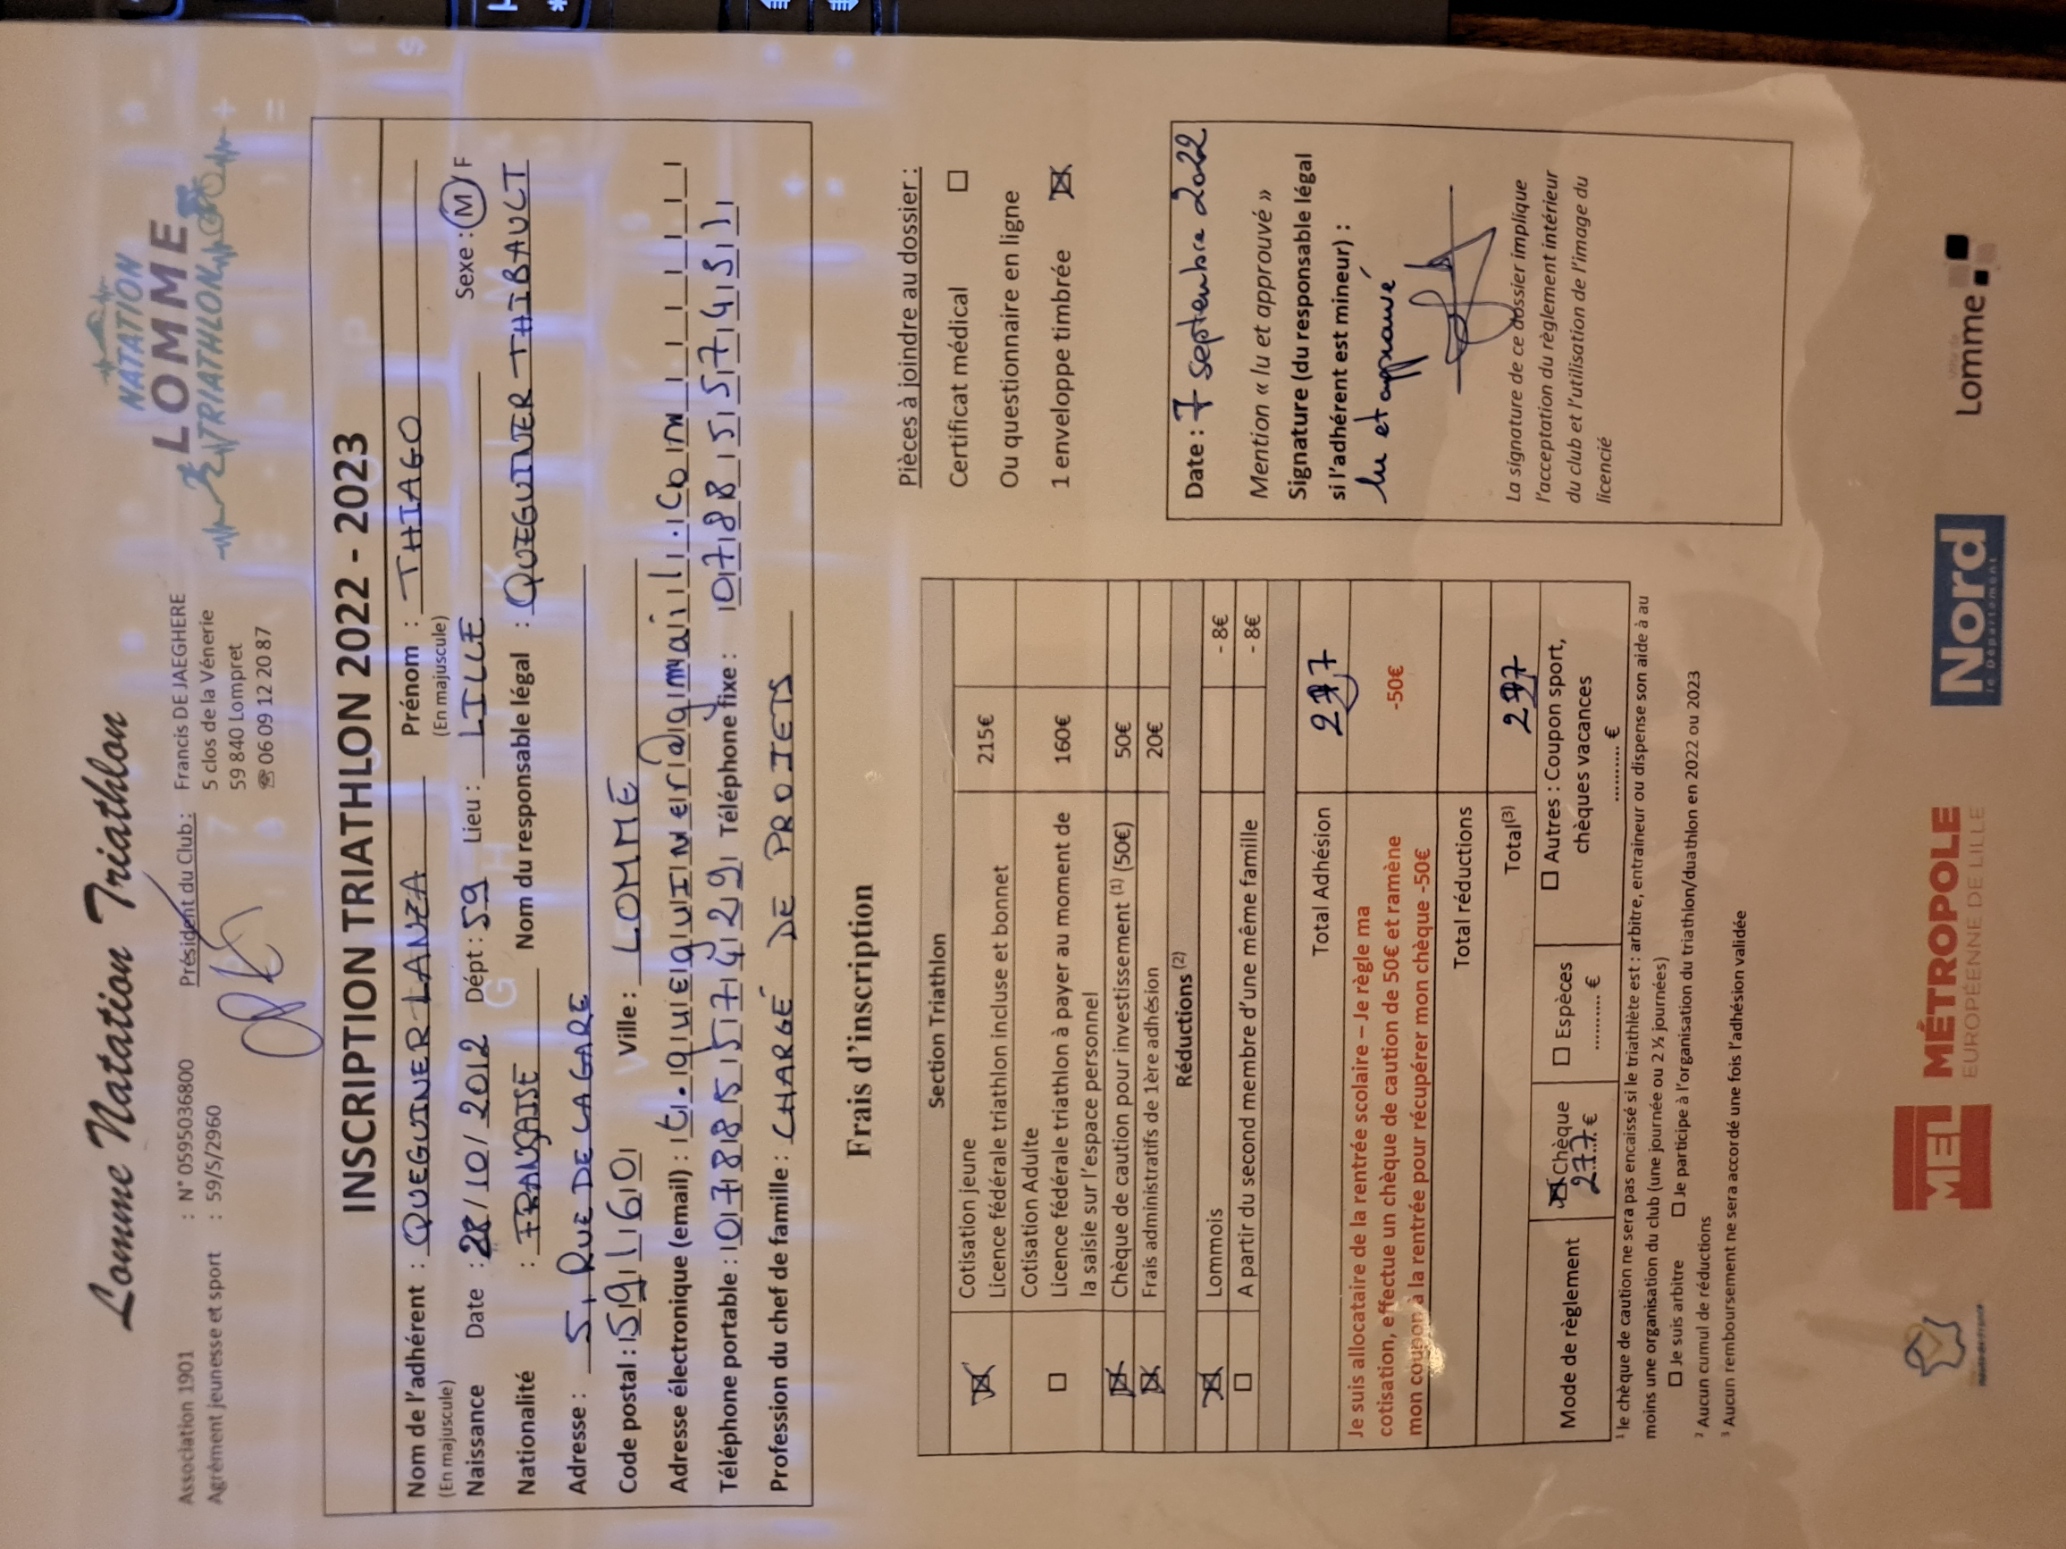 Lomme Natation Triathlon
NATATION
LOMME
TRIATHLON
Association 1901 : N° 0595036800
Agrément jeunesse et sport : 59/5/2960
Président du Club : Francis DE JAEGHERE
5 clos de la Vénerie
59 840 Lompret
☏ 06 09 12 20 87
INSCRIPTION TRIATHLON 2022 - 2023
Nom de l'adhérent : QUEGUINER LANZA Prénom : THIAGO
(En majuscule) (En majuscule)
Naissance Date : 28/10/2012 Dépt : 59 Lieu : LILLE Sexe : M / F
Nationalité : FRANÇAISE Nom du responsable légal : QUEGUINER THIBAULT
Adresse : 5, RUE DE LA GARE
Code postal : 59160 Ville : LOMME
Adresse électronique (email) : t.queguiner@gmail.com
Téléphone portable : 0788557429 Téléphone fixe : 0788557451
Profession du chef de famille : CHARGÉ DE PROJETS
Frais d'inscription
Section Triathlon
☒ Cotisation jeune
Licence fédérale triathlon incluse et bonnet 215€
☐ Cotisation Adulte
Licence fédérale triathlon à payer au moment de 160€
la saisie sur l'espace personnel
☒ Chèque de caution pour investissement (1) (50€) 50€
☒ Frais administratifs de 1ère adhésion 20€
Réductions (2)
☒ Lommois - 8€
☐ A partir du second membre d'une même famille - 8€
Total Adhésion 277
Je suis allocataire de la rentrée scolaire – Je règle ma
cotisation, effectue un chèque de caution de 50€ et ramène
mon coupon à la rentrée pour récupérer mon chèque -50€
-50€
Total réductions
Total(3) 277
Mode de règlement ☒ Chèque 277 € ☐ Espèces .......... € ☐ Autres : Coupon sport,
chèques vacances
.......... €
1 le chèque de caution ne sera pas encaissé si le triathlète est : arbitre, entraineur ou dispense son aide à au
moins une organisation du club (une journée ou 2 ½ journées)
☐ Je suis arbitre ☐ Je participe à l'organisation du triathlon/duathlon en 2022 ou 2023
2 Aucun cumul de réductions
3 Aucun remboursement ne sera accordé une fois l'adhésion validée
Pièces à joindre au dossier :
Certificat médical ☐
Ou questionnaire en ligne
1 enveloppe timbrée ☒
Date : 7 septembre 2022
Mention « lu et approuvé »
Signature (du responsable légal
si l'adhérent est mineur) :
lu et approuvé
La signature de ce dossier implique
l'acceptation du règlement intérieur
du club et l'utilisation de l'image du
licencié
MEL MÉTROPOLE
EUROPÉENNE DE LILLE
Nord
le Département
Lomme